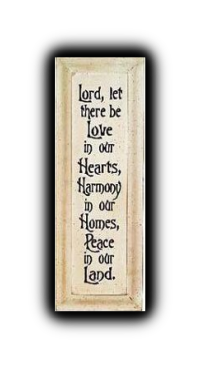 Lord, let
there be
Love
in our
Hearts,
Harmony
in our
Homes,
Peace
in our
Land.